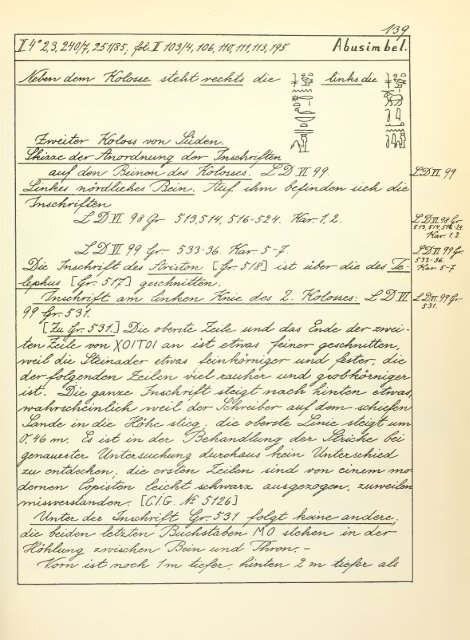 139
II 4° 2,3, 240/7, 251/85, fol. II 103/4, 106, 110, 111, 113, 195 Abusimbel.
Neben dem Kolosse steht rechts die links die
Zweiter Koloss von Süden.
Skizze der Anordnung der Inschriften
auf den Beinen des Kolosses. LD VI 99. LD VI 99
Linkes nördliches Bein. Auf ihm befinden sich die
Inschriften
LD VI 98 Gr 513, 514, 516-524. Kar. 1, 2. LD VI 98 Gr. 513, 514, 516-24. Kar. 1, 2.
LD VI 99 Gr 533-36. Kar. 5-7 LD VI 99 Gr. 533-36. Kar. 5-7
Die Inschrift des Ariston [Gr. 518] ist über die des Te-
lephus [Gr. 517] geschnitten.
Inschrift am linken Knie des 2. Kolosses: LD VI LD VI 99 Gr. 531.
99 Gr. 531.
[Zu Gr. 531.] Die oberste Zeile und das Ende der zwei-
ten Zeile von XOITOI an ist etwas feiner geschnitten,
weil die Steinader etwas feinkörniger und fester, die
der folgenden Zeilen viel rauher und grobkörniger
ist. Die ganze Inschrift steigt nach hinten etwas,
wahrscheinlich weil der Schreiber auf dem schiefen
Sande in die Höhe stieg; die oberste Linie steigt um
0,46 m. Es ist in der Behandlung der Striche bei
genauester Untersuchung durchaus kein Unterschied
zu entdecken; die ersten Zeilen sind von einem mo-
dernen Copisten leicht schwarz ausgezogen, zuweilen
missverstanden. [C.I.G. № 5126]
Unter der Inschrift Gr. 531 folgt keine andere;
die beiden letzten Buchstaben MO stehen in der
Höhlung zwischen Bein und Thron. -
Vorn ist noch 1 m tiefer, hinten 2 m tiefer als